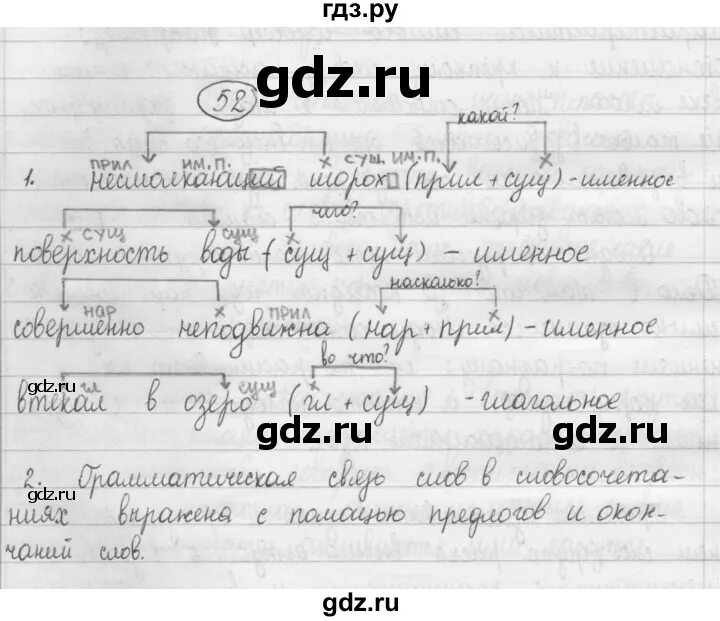 гдз.ру
gdz.ru
52
какой?
прил им.п. х сущ. им.п. х
1. несмолкающий шорох (прил + сущ) - именное
gdz.ru
чего?
х сущ сущ х
поверхность воды (сущ + сущ) - именное
насколько?
нар х прил х
совершенно неподвижна (нар + прил) - именное
во что?
gdz.ru
гл сущ х
втекал в озеро (гл + сущ) - глагольное
gdz.ru
2. Грамматическая связь слов в словосочета-
gdz.ru
ниях выражена с помощью предлогов и окон-
чаний слов.
gdz.ru
gdz.ru